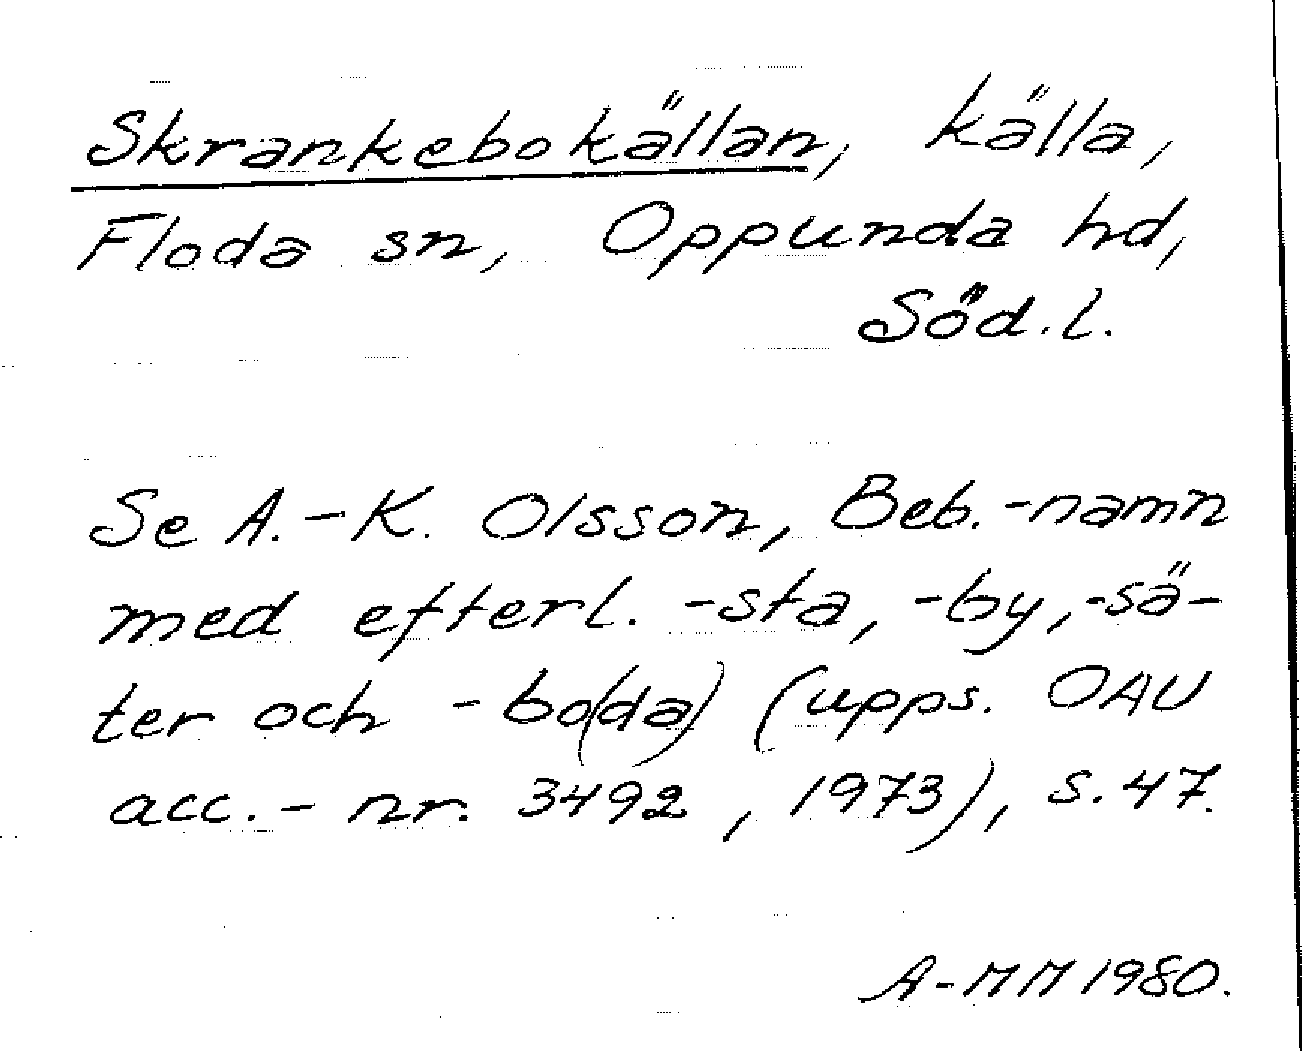 Skrankebokällan, källa,
Floda sn, Oppunda hd,
Söd.l.
Se A.-K. Olsson, Beb.-namn
med efterl. -sta, -by, -sä-
ter och -bo(da) (upps. OAU
acc.-nr. 3492, 1973), s. 47.
A-MM 1980.